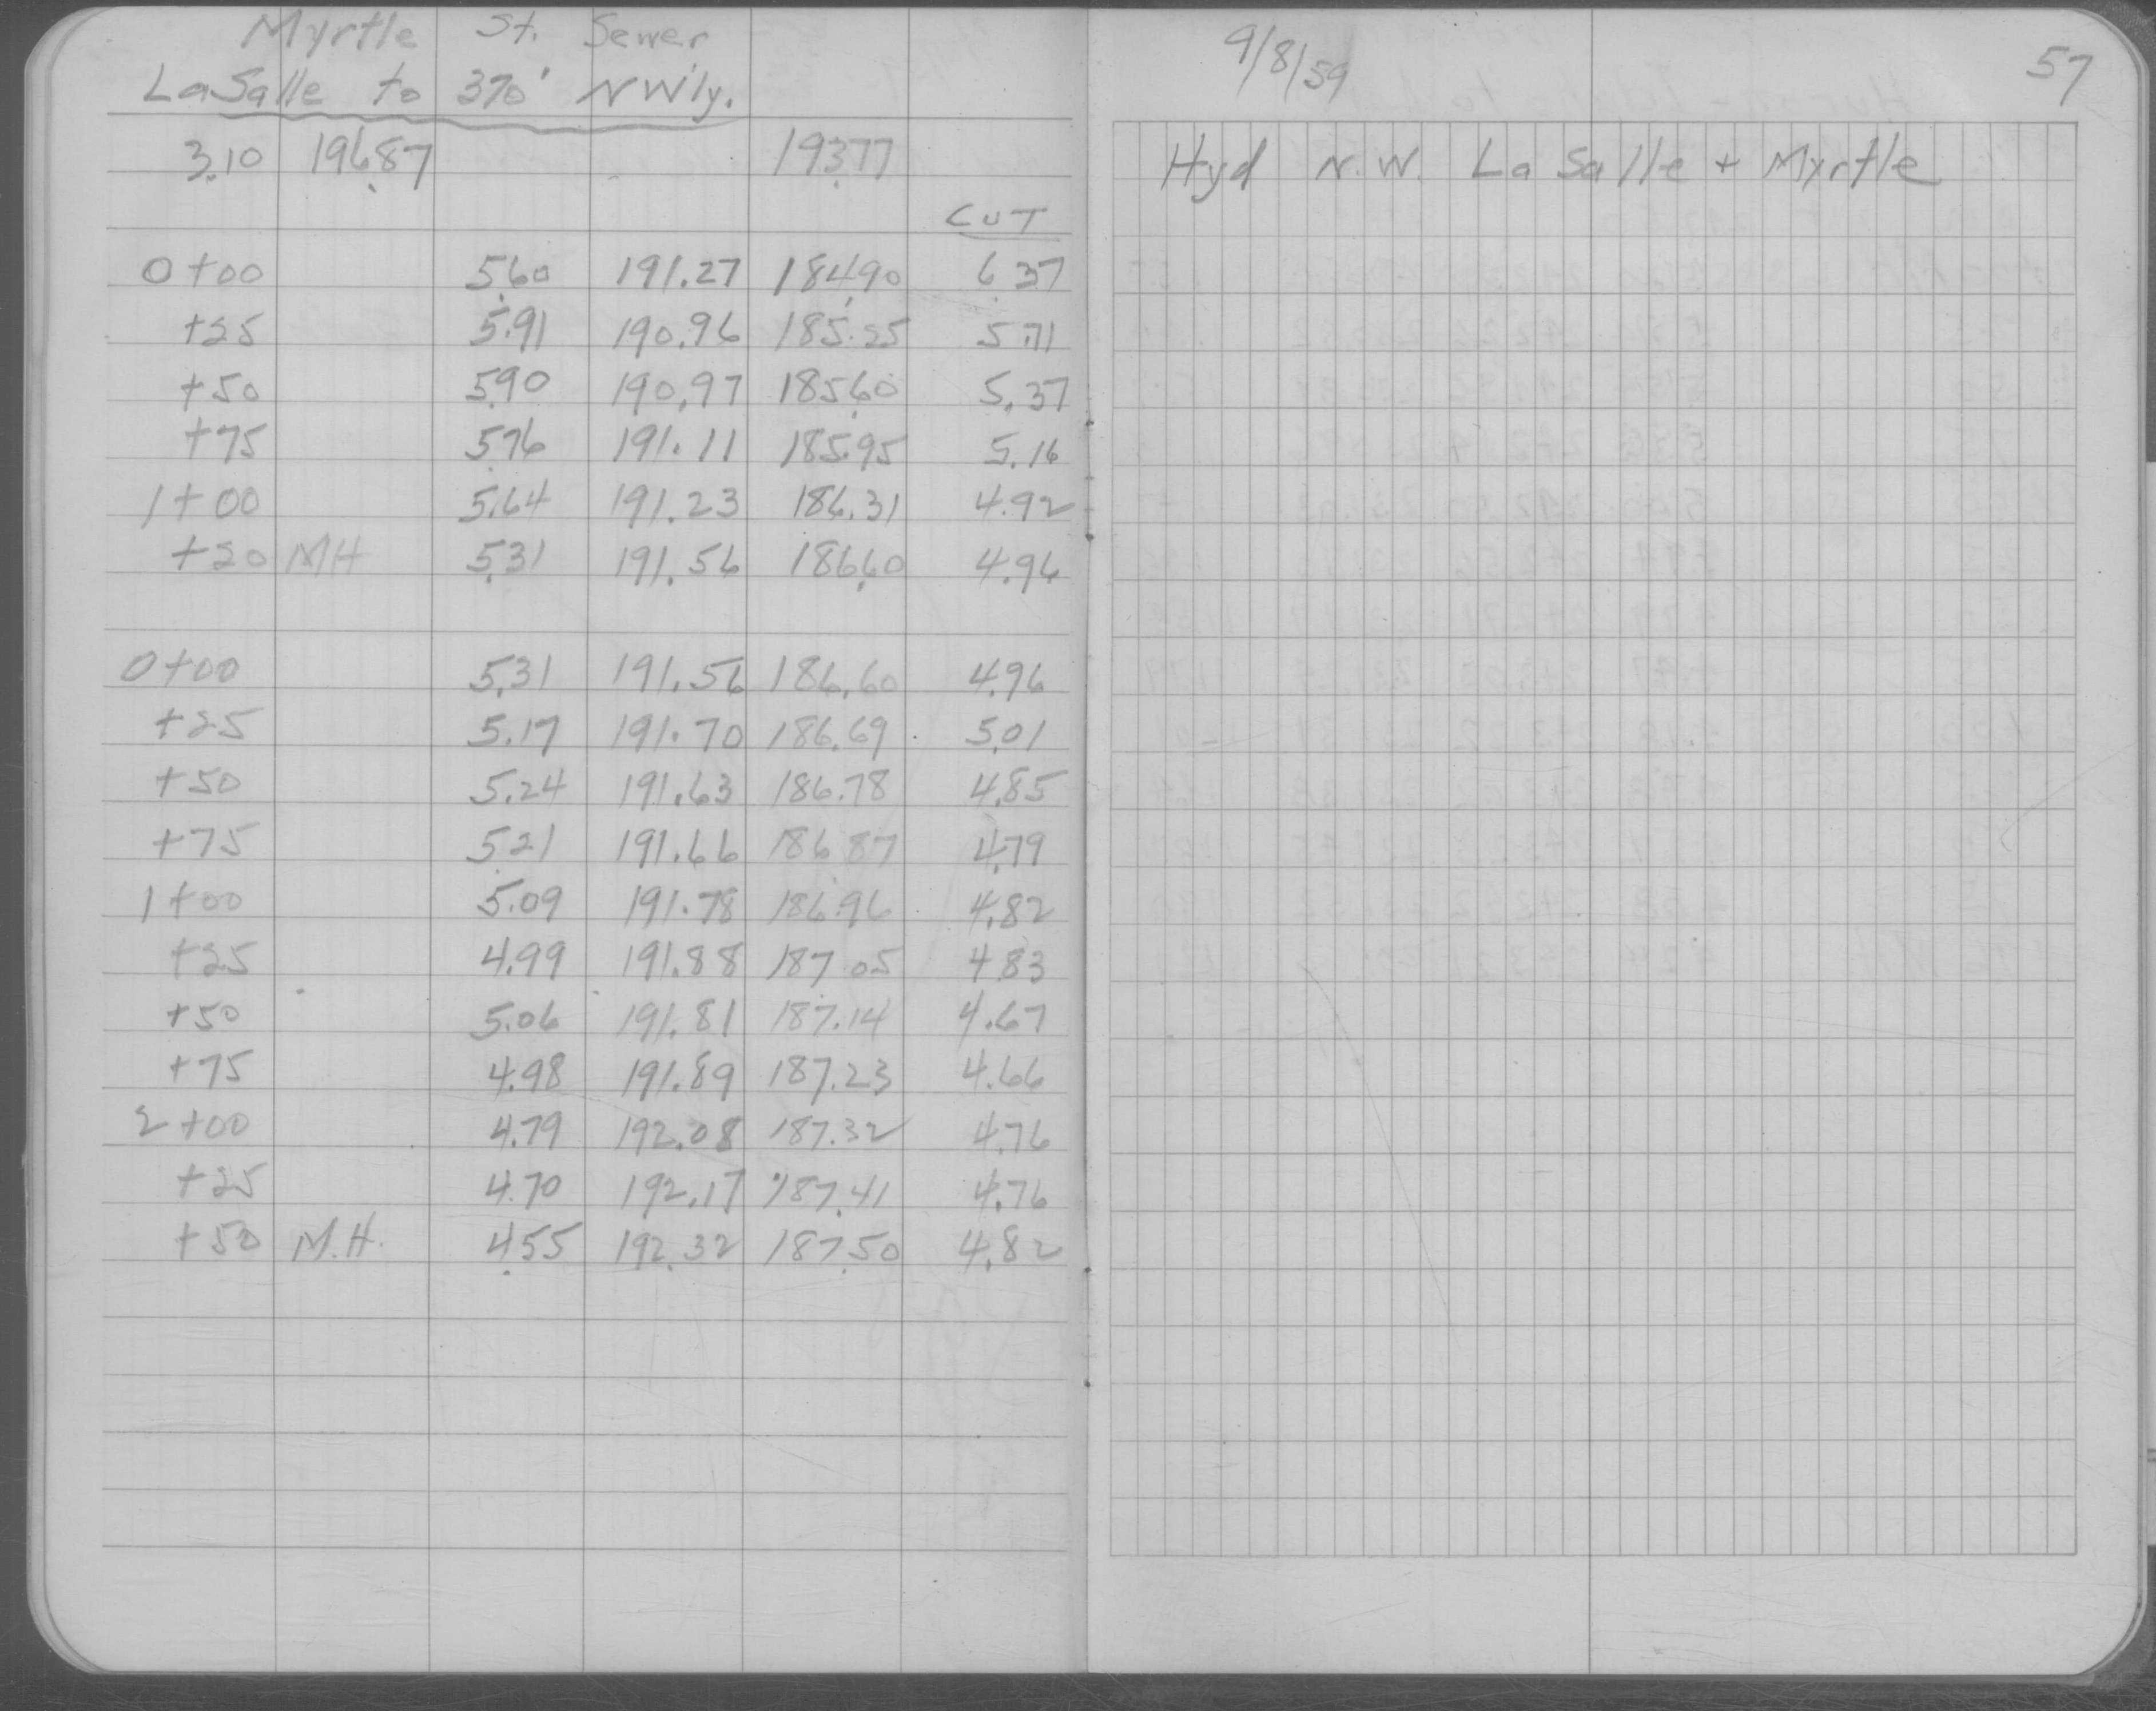 Myrtle St. Sewer
LaSalle to 370' NW'ly.
3.10 196.87 193.77
CUT
0+00 5.60 191.27 184.90 6.37
+25 5.91 190.96 185.25 5.71
+50 5.90 190.97 185.60 5.37
+75 5.76 191.11 185.95 5.16
1+00 5.64 191.23 186.31 4.92
+20 MH 5.31 191.56 186.60 4.96
0+00 5.31 191.56 186.60 4.96
+25 5.17 191.70 186.69 5.01
+50 5.24 191.63 186.78 4.85
+75 5.21 191.66 186.87 4.79
1+00 5.09 191.78 186.96 4.82
+25 4.99 191.88 187.05 4.83
+50 5.06 191.81 187.14 4.67
+75 4.98 191.89 187.23 4.66
2+00 4.79 192.08 187.32 4.76
+25 4.70 192.17 187.41 4.76
+50 M.H. 4.55 192.32 187.50 4.82
9/8/59 57
Hyd N.W. La Salle + Myrtle